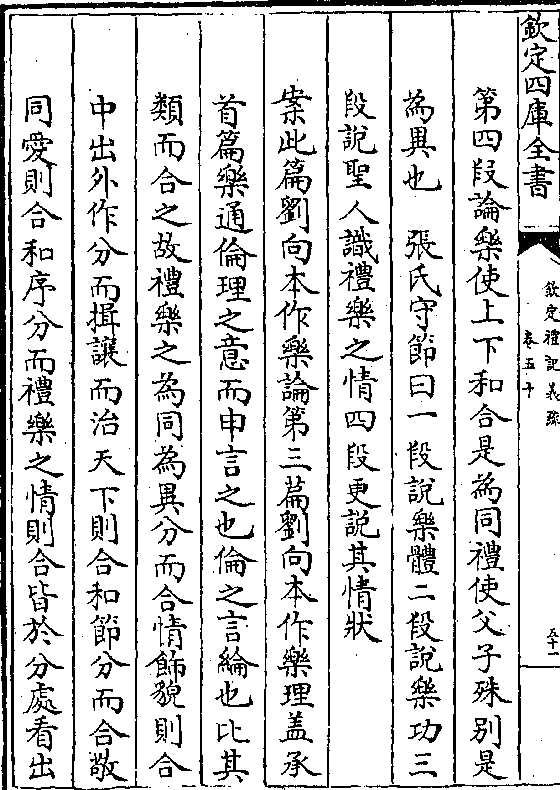 欽定四庫全書
欽定禮記義疏
卷五十
五十一
第四段論樂使上下和合是為同禮使父子殊别是
為異也　張氏守節曰一段說樂體二段說樂功三
段說聖人識禮樂之情四段更說其情狀
案此篇劉向本作樂論第三篇劉向本作樂理盖承
首篇樂通倫理之意而申言之也倫之言綸也比其
類而合之故禮樂之為同為異分而合情飾貌則合
中出外作分而揖讓而治天下則合和節分而合敬
同愛則合和序分而禮樂之情則合皆於分處看出